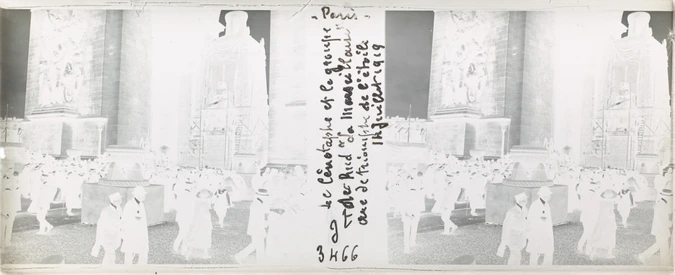 Paris
Le Cénotaphe et le groupe
de Rud "la Marseillaise"
arc de triomphe de l'étoile
14 Juillet 1919
3466